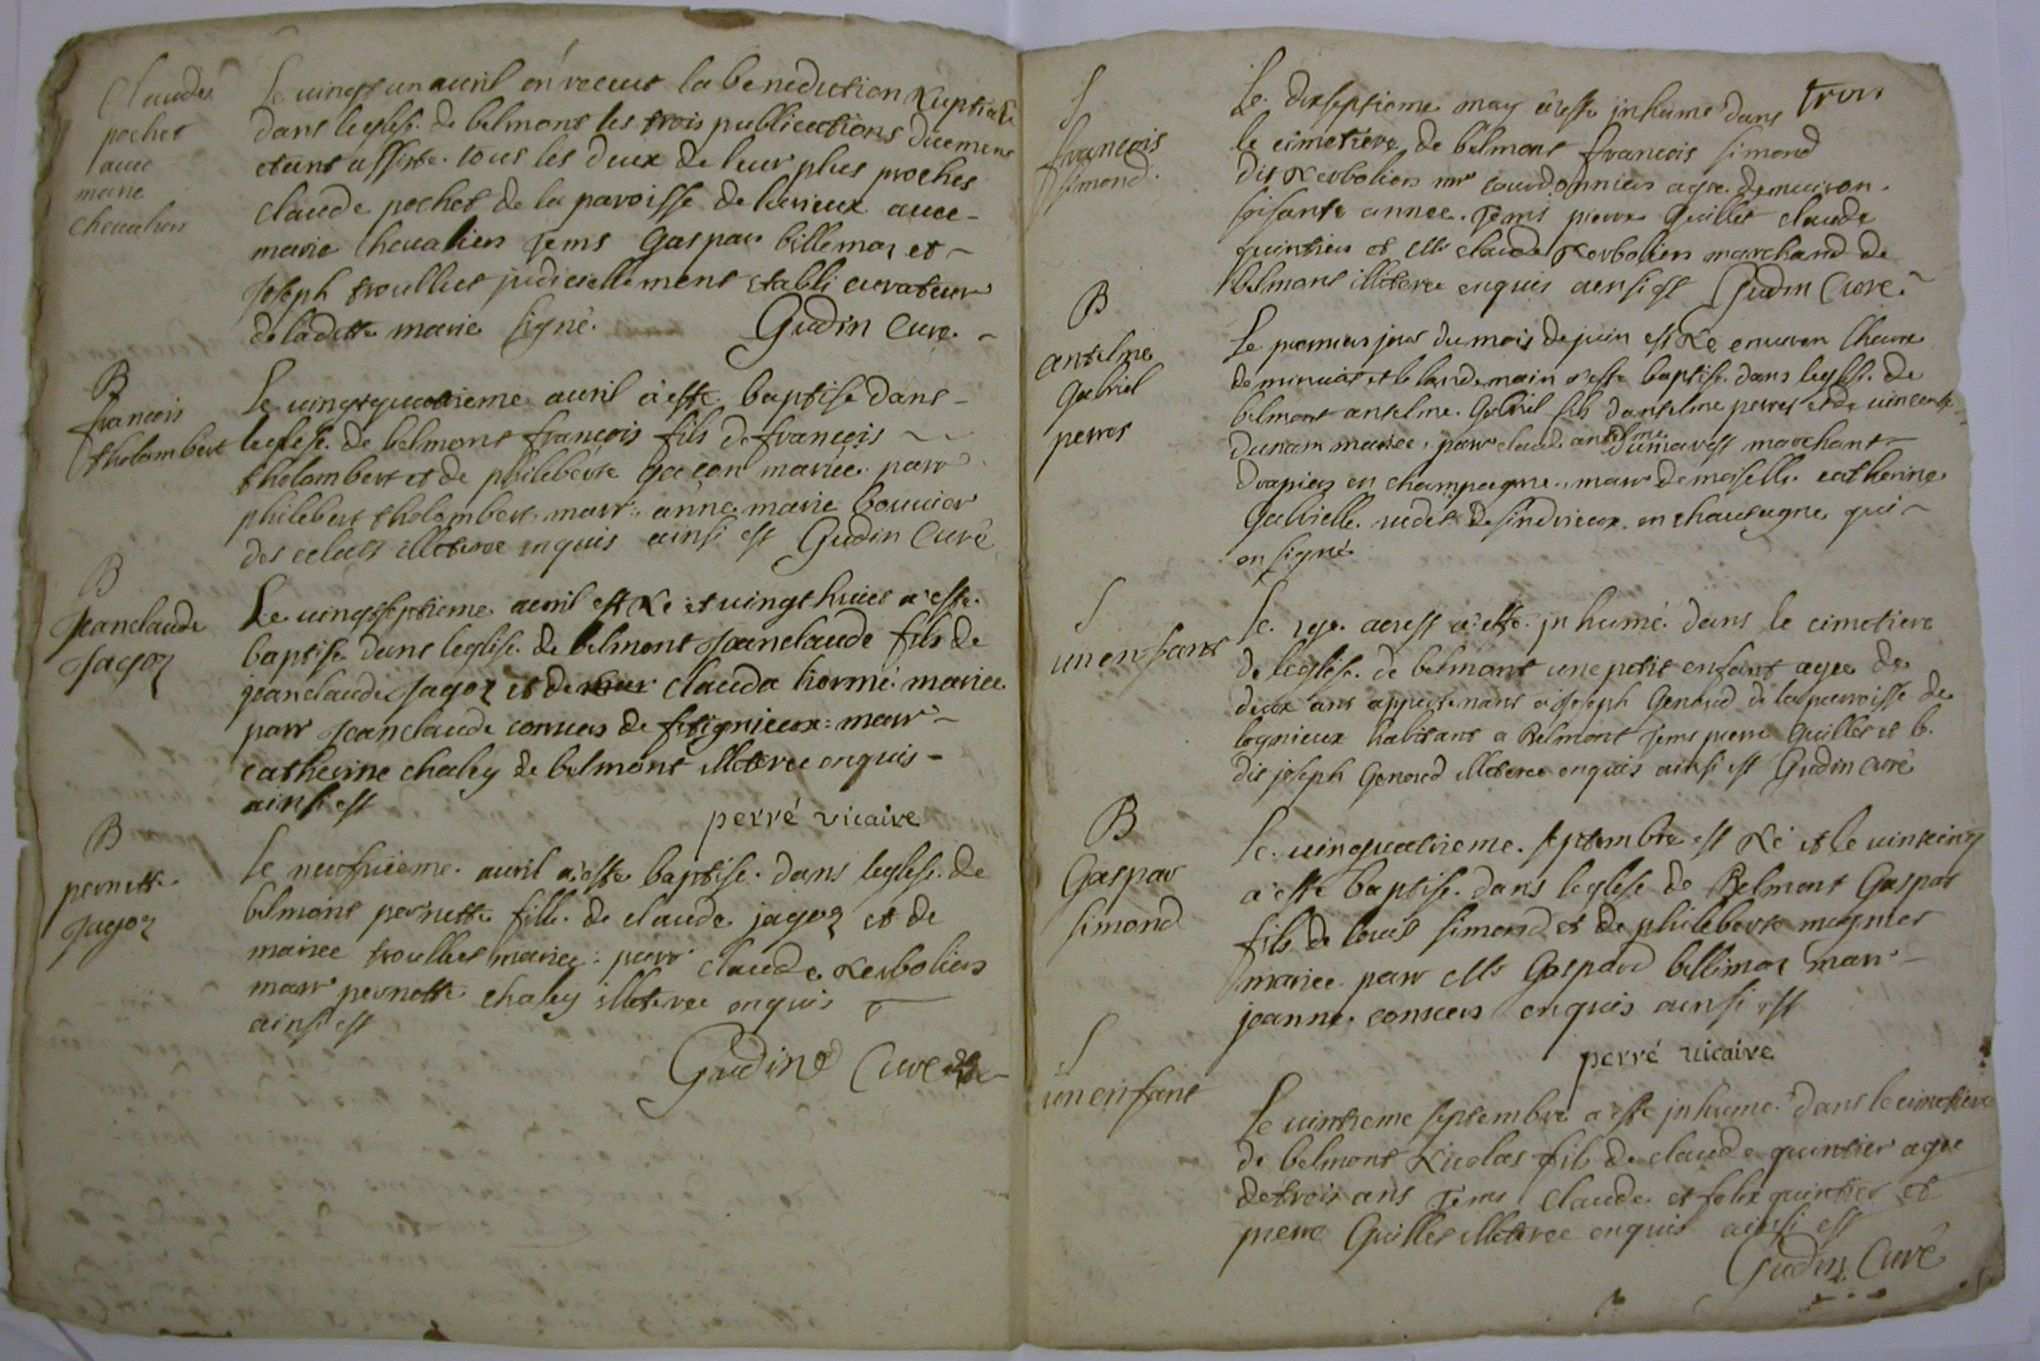 Claude
pochet
auec
marie
Cheualier
Le uingt un auril on receut la benediction Nuptiale
dans leglise de belmont les trois publications duement
etant assiste tous les deux de leur plus proches
claude pochet de la paroisse de auec
marie Cheualier Tems Gaspar billemaz et
Joseph troulliet judiciellement etabli curateur
de ladette marie signé. Gudin Curé
B
francois
tholombert
Le uingtquatrieme auril a este baptise dans
leglise de belmont francois fils de francois
tholombert et de philiberte gacon mariée parr
philibert tholombert marr anne marie bouuier
des illiteree enquis ainsi est Gudin Curé
B
Jeanclaude
Jagoz
Le uingtseptieme auril est Né et uingt huict a este
baptise dans leglise de belmont Jeanclaude fils de
jeanclaude Jagoz et de clauda hormi mariee
parr Jeanclaude conuers de fitignieux marr
catherine chaley de belmont illiteree enquis
ainsi est
perré vicaire
B
pernette
Jagoz
le neufuieme auril a este baptise dans leglise de
belmont pernette fille de claude jagoz et de
mariee troulliet mariee parr claude Kerbolier
marr pernette chaley illiteree enquis
ainsi est
Gudin Curé
trois
S
francois
simond
Le dixseptieme may a este inhume dans
le cimetiere de belmont francois simond
dit Kerbolier mre courdonnier agee denuiron
soisante annee Tems pierre Guillet claude
quintier et claude Kerbolier marchand de
belmont illiteree enquis ainsi est Gudin Curé
B
anselme
Gabriel
perret
Le premier jour du mois de juin est Né enuiron lheure
de minuict et le landemain a este baptise dans leglise de
belmont anselme Gabriel fils danselme perret et de uincente
mariee parr claude anselme dumarest marchant
drapier en champagne marr demoiselle catherine
Gabrielle de en chautagne qui
on signé
S
un enfant
le aoust a este inhumé dans le cimetiere
de leglise de belmont une petit enfant agee de
deux ans appartenant a joseph Genoud de la parroisse de
lognieux habitant a Belmont Tems pierre Guillet et le
dit joseph Genoud illiteree enquis ainsi est Gudin curé
B
Gaspar
simond
le uingquatrieme septembre est Né et le uintcinq
a este baptise dans leglise de Belmont Gaspar
fils de louis simond et de philiberte mugnier
mariee parr Gaspard billimaz marr
jeanne conuers enquis ainsi est
perré vicaire
S
un enfant
le uintieme septembre a este inhume dans le cimetiere
de belmont Nicolas fils de claude quintier agee
de trois ans Tems Claude et felix quintier et
pierre Guillet illiteree enquis ainsi est
Gudin Curé